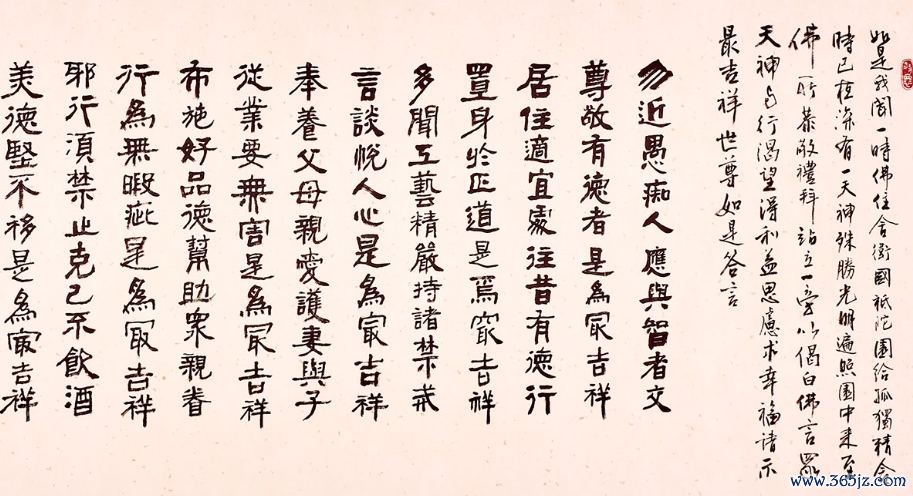 如是我聞一時佛住舍衛國祇陀園給孤獨精舍
時已極深有一天神殊勝光明遍照園中來至
佛所恭敬禮拜站立一旁以偈白佛言眾
天神與行渴望得利益思慮求幸福請示
最吉祥世尊如是答言
勿近愚痴人應與智者交
尊敬有德者是為冣吉祥
居住適宜處往昔有德行
置身於正道是為冣吉祥
多聞工藝精嚴持諸禁戒
言談悅人心是為冣吉祥
奉養父母親愛護妻與子
從業要無害是為冣吉祥
布施好品德幫助眾親眷
行為無暇疵是為冣吉祥
邪行須禁止克己不飲酒
美德堅不移是為冣吉祥
www.365jz.com